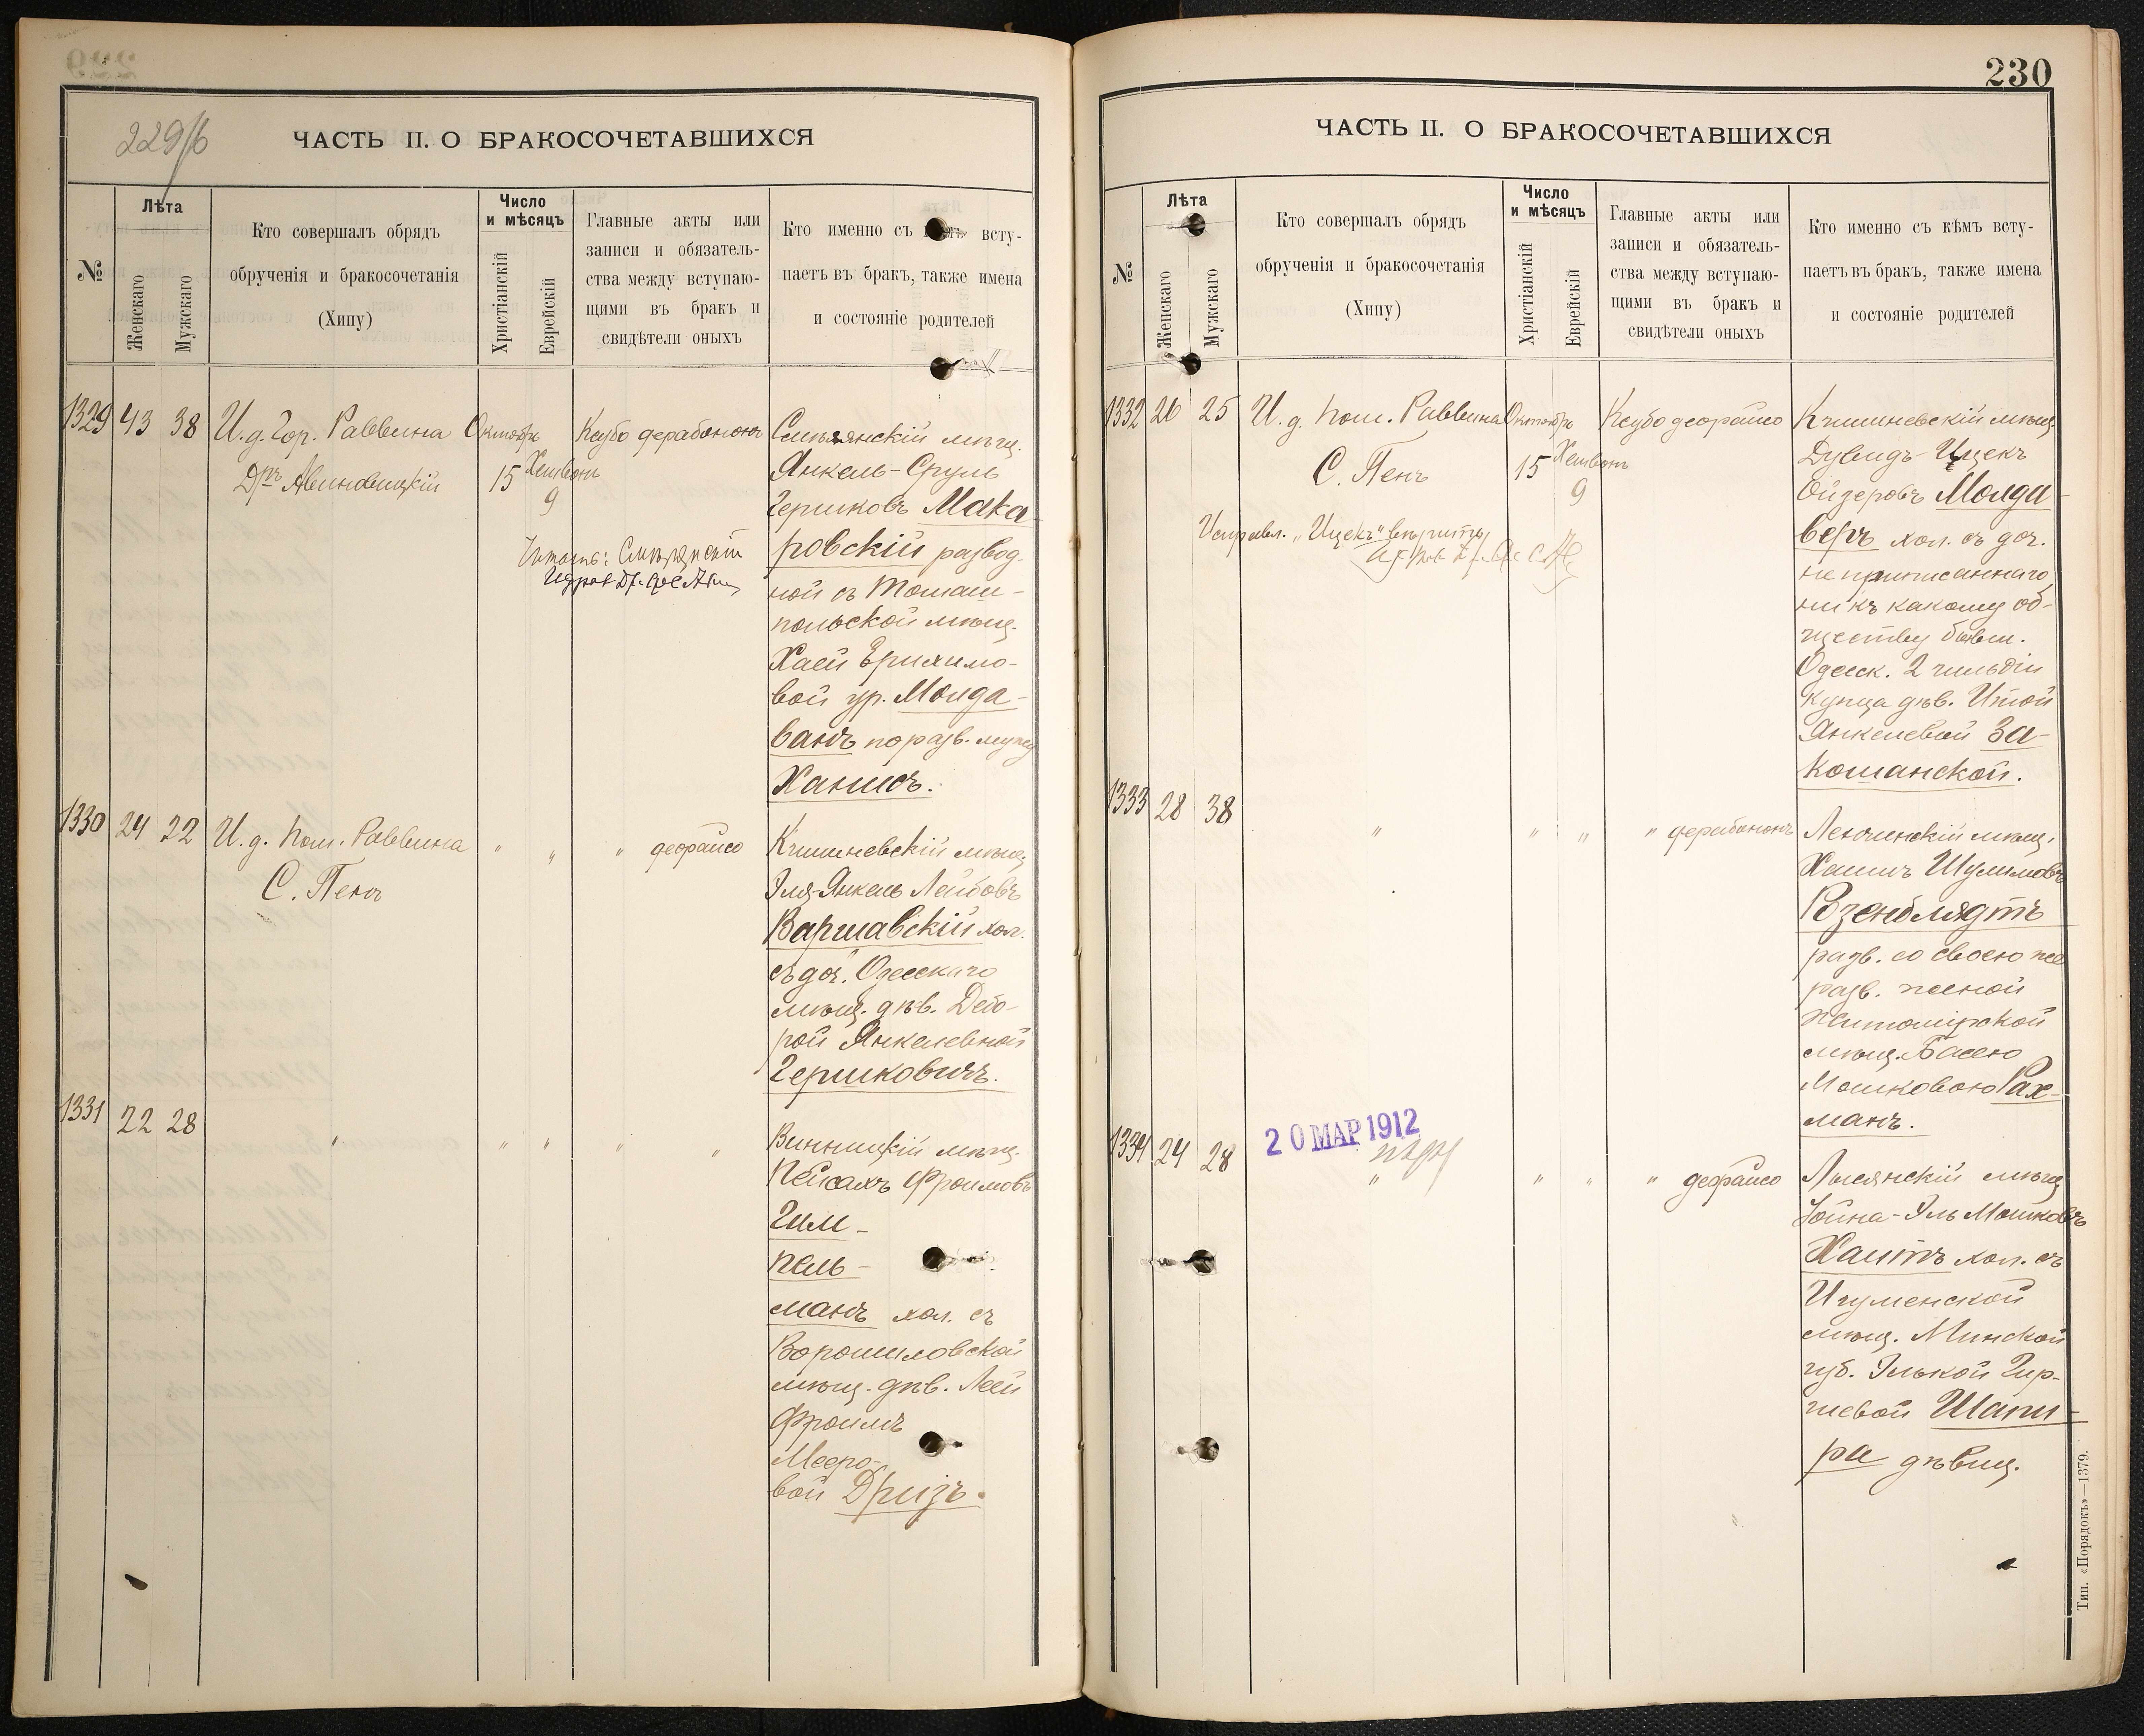 229/б
ЧАСТЬ II. О БРАКОСОЧЕТАВШИХСЯ
№
Лѣта
Женскаго
Мужскаго
Кто совершалъ обрядъ
обрученія и бракосочетанія
(Хипу)
Число
и мѣсяцъ
Христіанскій
Еврейскій
Главные акты или
записи и обязатель-
ства между вступаю-
щими въ бракъ и
свидѣтели оныхъ
Кто именно съ всту-
паетъ въ бракъ, также имена
и состояніе родителей
1329 43 38 И. д. Гор. Раввина Октября Ксубо дерабононъ
Дръ Авиновицкій 15 Хешвонъ
9
Смѣлянскій мѣщ.
Янкель-Сруль
Гершковъ Мака-
ровскій развод.
ной съ Томаш-
польской мѣщ.
Хаей Ерихимо-
вой ур. Молда-
ванъ по разв. мужу
Ханисъ.
1330 24 22 И. д. Пом. Раввина " " " деорайсо
С. Пенъ
Кишиневскій мѣщ.
Эля-Янкель Лейбовъ
Варшавскій хол.
съ доч. Одесскаго
мѣщ. дѣв. Дебо-
рой Янкелевной
Гершковичъ.
1331 22 28 " " " " "
Винницкій мѣщ.
Пейсахъ Фроимовъ
Гим-
пель-
манъ хол. съ
Ворошиловской
мѣщ. дѣв. Леей
Фроимъ
Мееро-
вой Дризъ.
230
ЧАСТЬ II. О БРАКОСОЧЕТАВШИХСЯ
№
Лѣта
Женскаго
Мужскаго
Кто совершалъ обрядъ
обрученія и бракосочетанія
(Хипу)
Число
и мѣсяцъ
Христіанскій
Еврейскій
Главные акты или
записи и обязатель-
ства между вступаю-
щими въ бракъ и
свидѣтели оныхъ
Кто именно съ кѣмъ всту-
паетъ въ бракъ, также имена
и состояніе родителей
1332 26 25 И. д. Пом. Раввина Октября Ксубо деорайсо
С. Пенъ 15 Хешвонъ
9
Исправл. "Ицекъ"
Кишиневскій мѣщ.
Дувидъ-Ицекъ
Ойзеровъ Молда-
веръ хол. съ доч.
не приписаннаго
ни къ какому об-
ществу бывш.
Одесск. 2 гильдіи
купца дѣв. Итой
Янкелевой За-
кошанской.
1333 28 38 " " " " дерабононъ
Хаимъ Шулимовъ
Розенблядтъ
разв. со своею же
разв. женой
Житомірской
мѣщ. Басею
Мошковою Рах-
манъ.
20 МАР 1912
1334 24 28 " " " " деорайсо
Лысянскій мѣщ.
Іойна-Эль Мошковъ
Хаитъ хол. съ
Игуменской
мѣщ. Минской
губ. Элькой Гир-
шевой Шапи-
ра дѣвиц.
Тип. «Порядокъ»—1379.